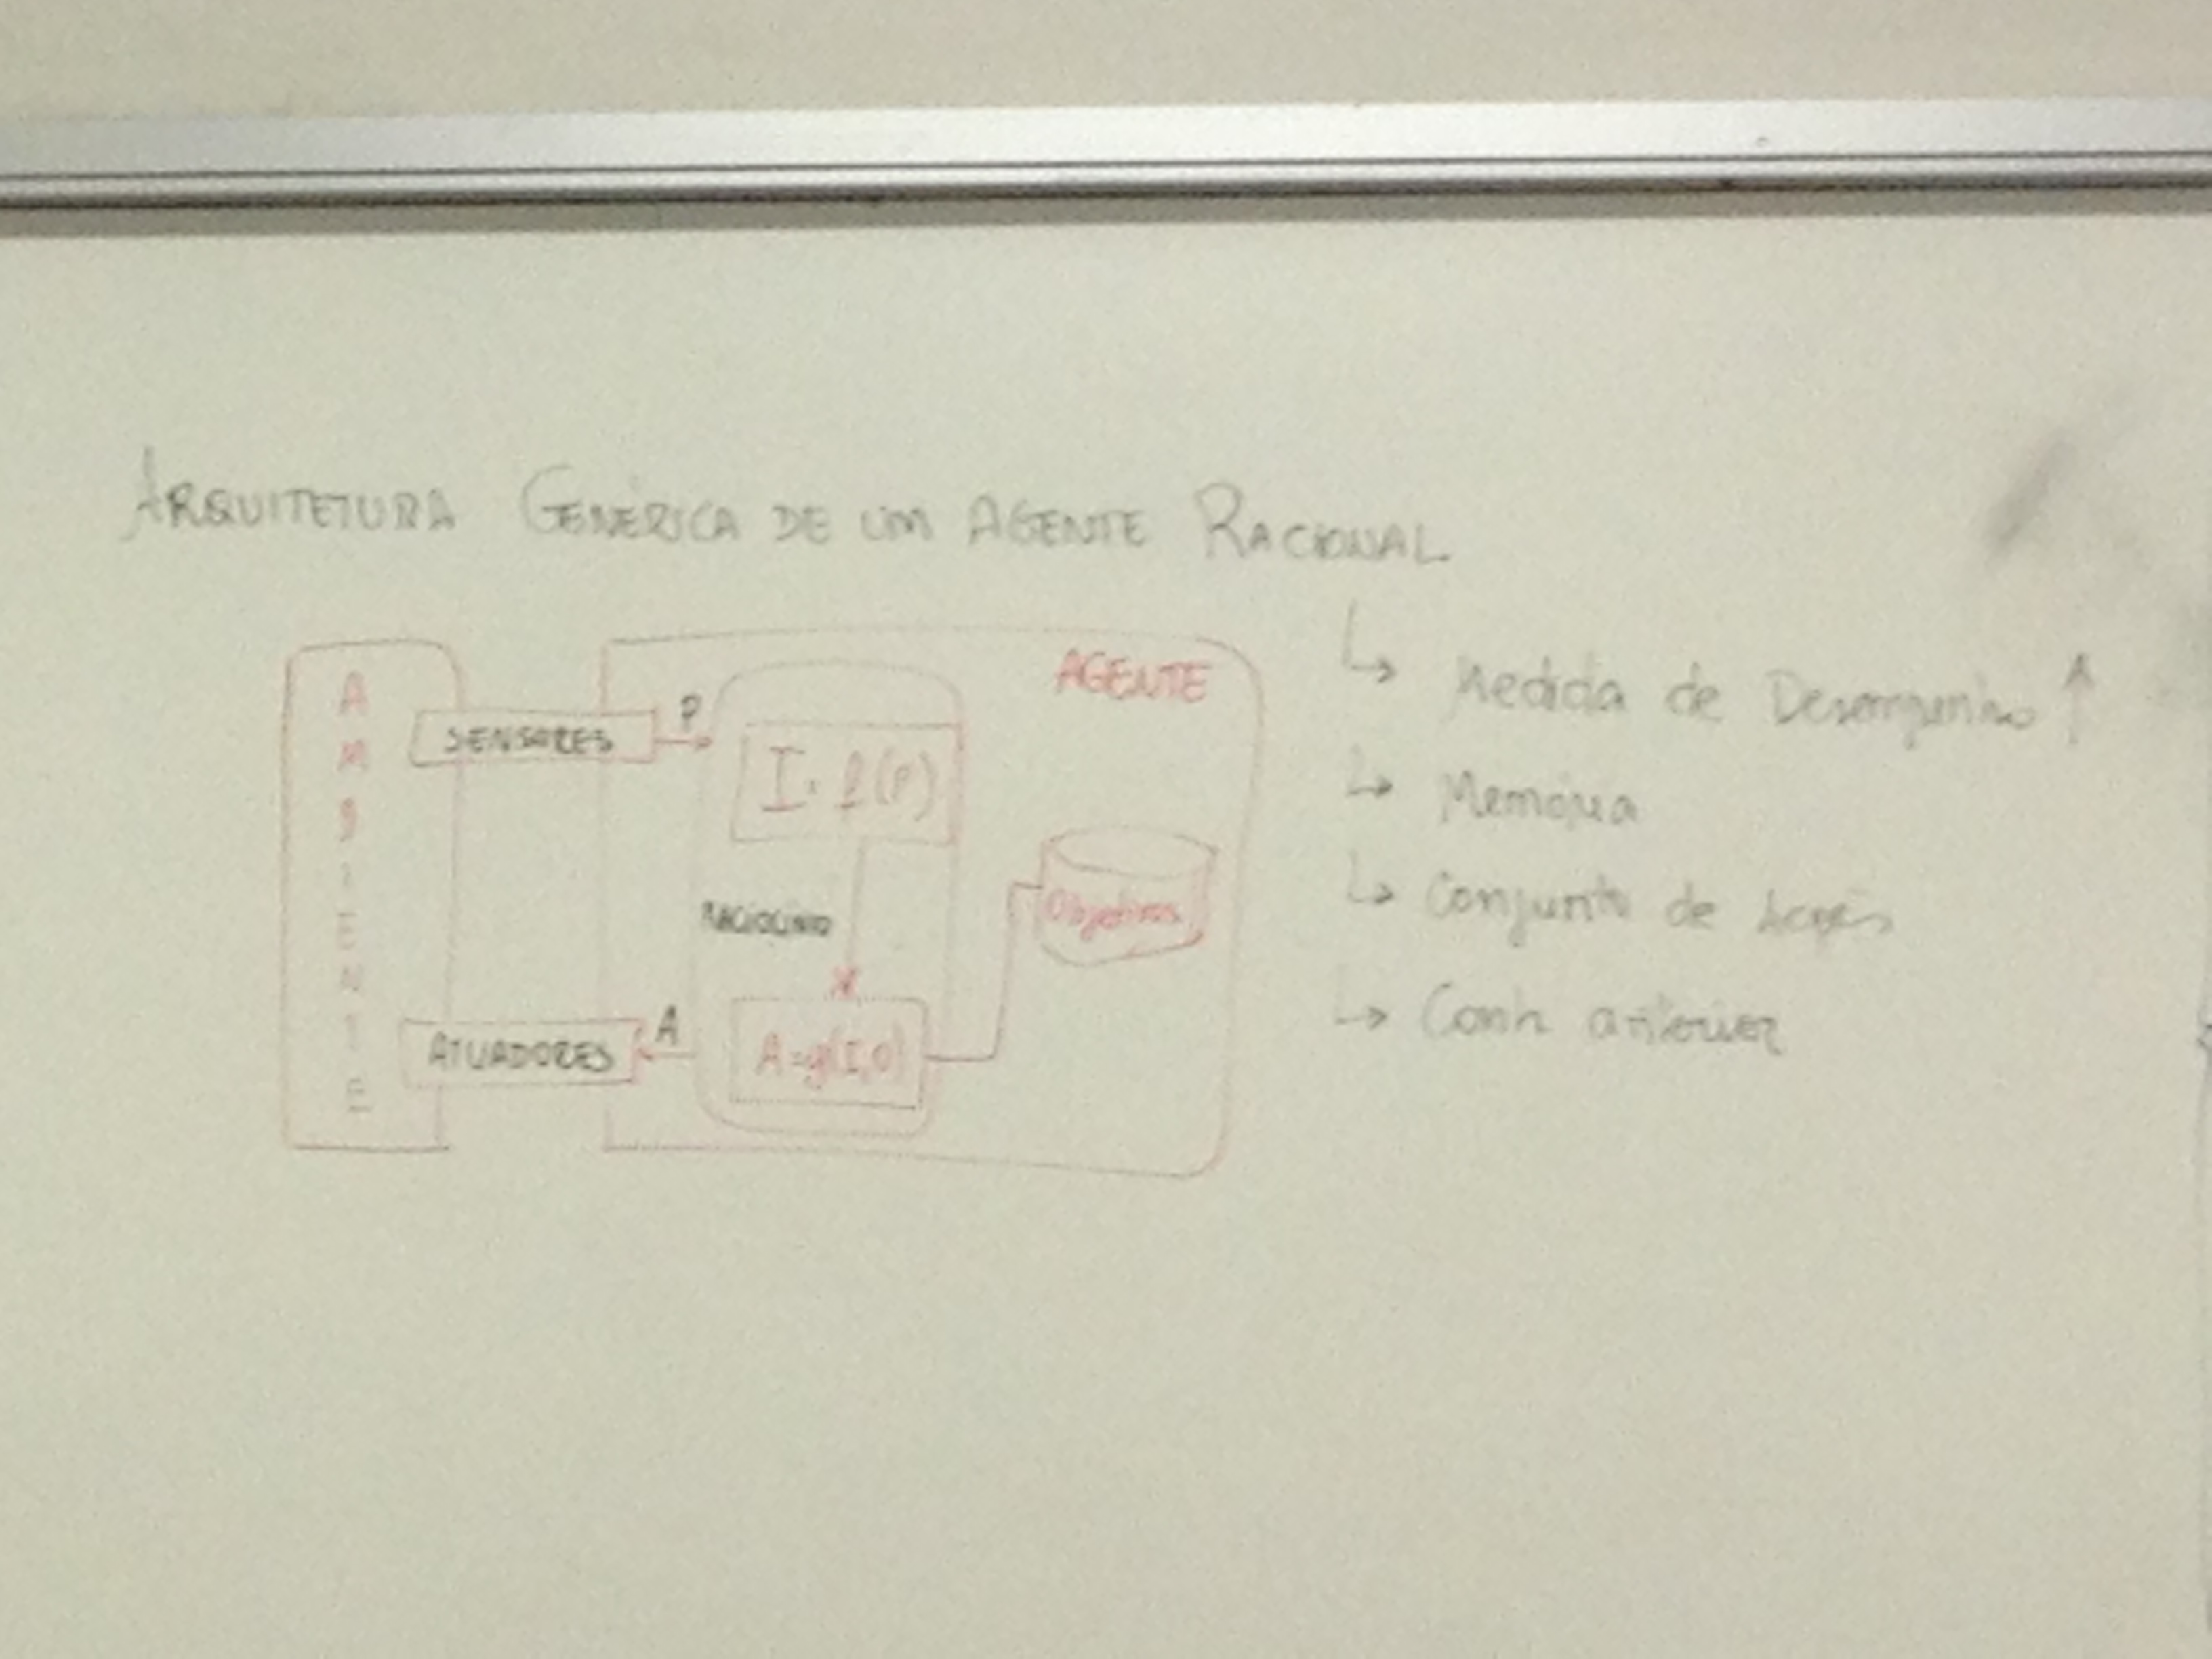 ARQUITETURA GENÉRICA DE UM AGENTE RACIONAL
AMBIENTE
SENSORES
P
AGENTE
I = f(P)
RACIOCÍNIO
Objetivos
ATUADORES
A
A = g(I,O)
↳ Medida de Desempenho ↑
↳ Memória
↳ Conjunto de Ações
↳ Conh anterior